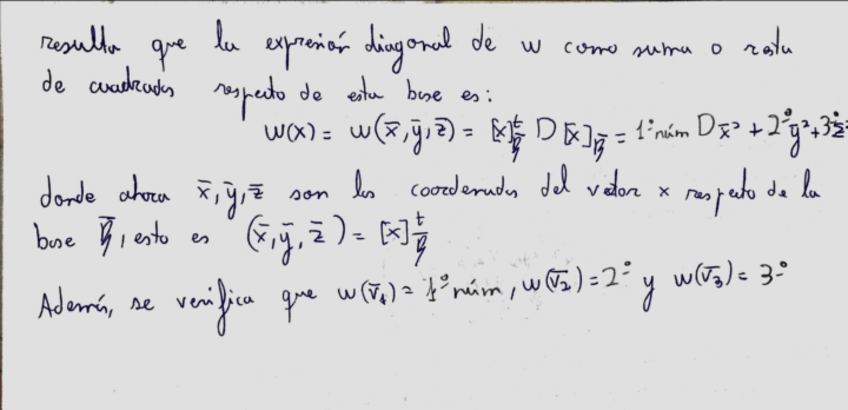 resulta que la expresión diagonal de w como suma o resta
de cuadrados respecto de esta base es:
w(x) = w(x̄, ȳ, z̄) = [x]ᵗ_B̄ D [x]_B̄ = 1º núm D x̄² + 2º ȳ² + 3º z̄²
donde ahora x̄, ȳ, z̄ son las coordenadas del vector x respecto de la
base B̄, esto es (x̄, ȳ, z̄) = [x]ᵗ_B̄
Además, se verifica que w(v̄₁) = 1º núm, w(v̄₂) = 2º y w(v̄₃) = 3º